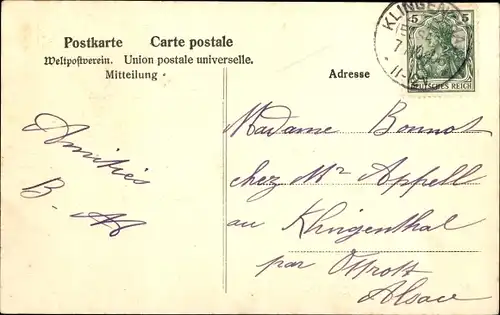 Postkarte Carte postale
Weltpostverein. Union postale universelle.
Mitteilung
Adresse
KLINGENTHAL
5 5
DEUTSCHES REICH
Amitiés
B.
Madame Bonnot
chez Mr Appell
au Klingenthal
par Ottrott
Alsace